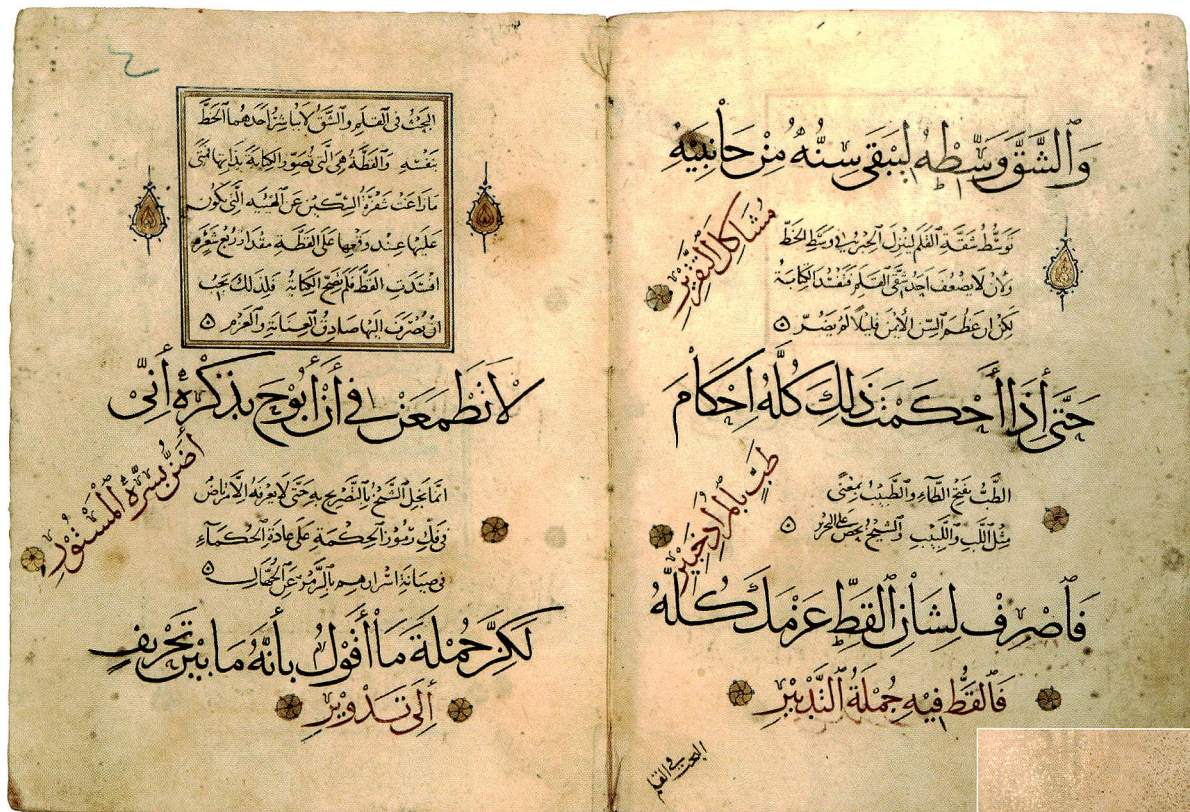 وَالشَّقَّ وَسِّطْهُ لِيَبْقَى سِنُّهُ مِنْ جَانِبَيْهِ
مُشَاكِلَ التَّقْدِيرِ
تَوَسُّطُ شَقَّةِ القَلَمِ لِيَنْزِلَ الحِبْرُ في وَسَطِ الخَطِّ
ولأن لا يضعف احد شقي القلم فتفسد الكتابة
لكن ان عظم السن الأيمن قليلًا لم يضر
حَتَّى إِذَا أَحْكَمْتَ ذَلِكَ كُلَّهُ إِحْكَامَ
طَبٍّ بِالمُرَادِ خَبِيرِ
الطَّبُّ بفتح الطَّاءِ والطَّبِيبُ بمعنًى
مِثْلُ اللَّبِّ واللَّبِيبِ والشيخ يحض على الحرير
فَاصْرِفْ لِشَأْنِ القَطِّ عَزْمَكَ كُلَّهُ
فَالقَطُّ فِيهِ جُمْلَةُ التَّدْبِيرِ
البحث في القلم
البحث في القلم والشق لا يباشر احدهما الخط
بنفسه والقطة هي التي تصور الكتابة بذاتها فمتى
ما زاغت شفرة السكين عن الهيئه التي يكون
عليها عند وقعها على القطة مقدار ربع شعرة
افسدت القط فلم تصح الكتابة فلذلك يجب
ان يصرف اليها صادق العناية والعزم
لَا تَطْمَعَنْ فِي أَنْ أَبُوحَ بِذِكْرِهِ إِنِّي
أَضَنُّ بِسِرِّهِ المَسْتُورِ
انما بخل الشيخ بالتصريح به حتى لا يعرفه الا مرتاض
في فك رموز الحكمة على عادة الحكماء
في صيانة اسرارهم بالرمز عن الجهال
لَكِنَّ جُمْلَةَ مَا أَقُولُ بِأَنَّهُ مَا بَيْنَ تَحْرِيفٍ
إِلَى تَدْوِيرِ